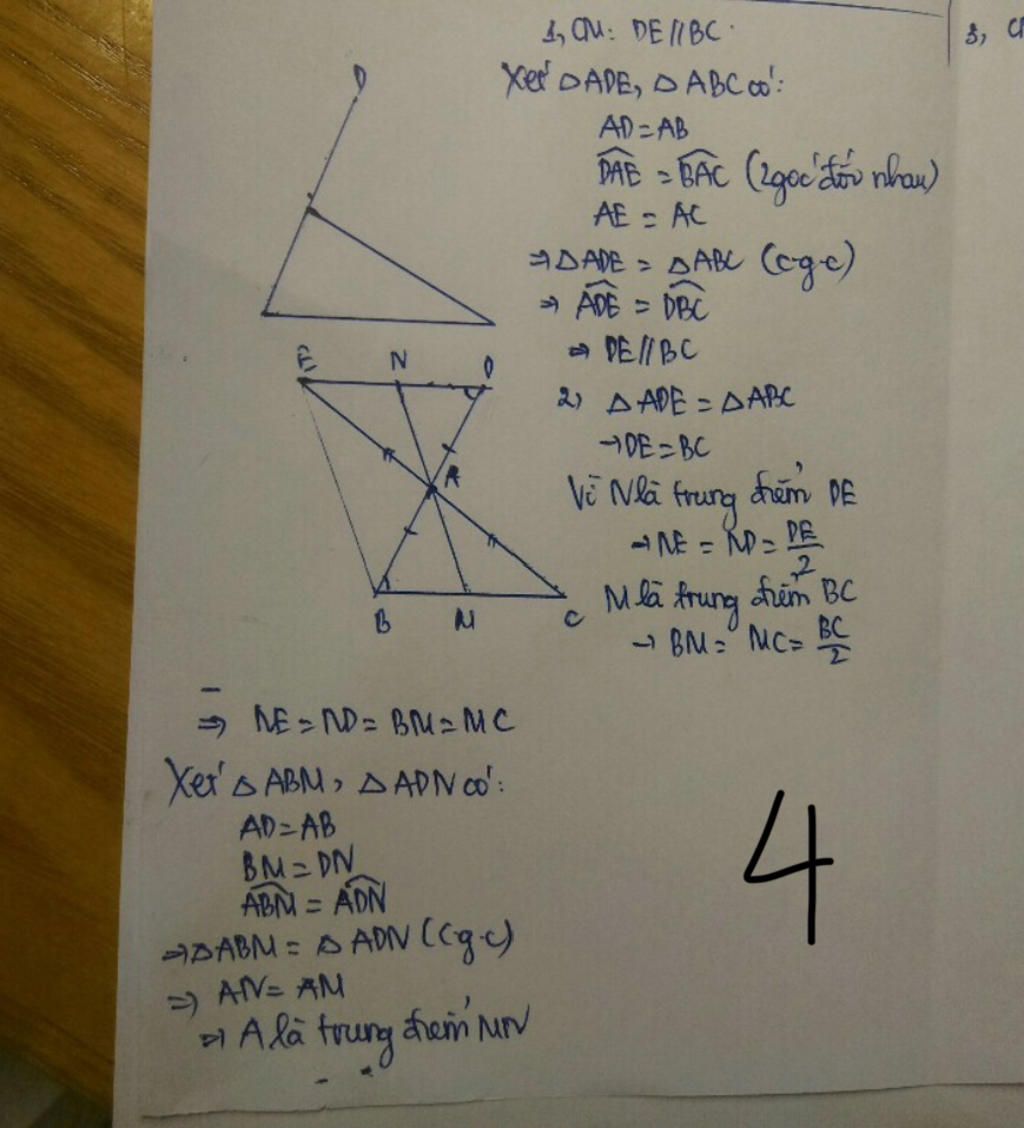 1, CM: DE // BC.
3, C
Xét △ADE, △ABC có:
AD = AB
D̂AE = B̂AC (2 góc đối nhau)
AE = AC
⇒ △ADE = △ABC (c-g-c)
⇒ ÂDE = D̂BC
⇒ DE // BC
D
E N D
A
B M C
2) △ADE = △ABC
→ DE = BC
Vì N là trung điểm DE
→ NE = ND = DE/2
M là trung điểm BC
→ BM = MC = BC/2
⇒ NE = ND = BM = MC
Xét △ABM, △ADN có:
AD = AB
BM = DN
ÂBM = ÂDN
⇒ △ABM = △ADN (c.g.c)
⇒ AN = AM
⇒ A là trung điểm MN
4